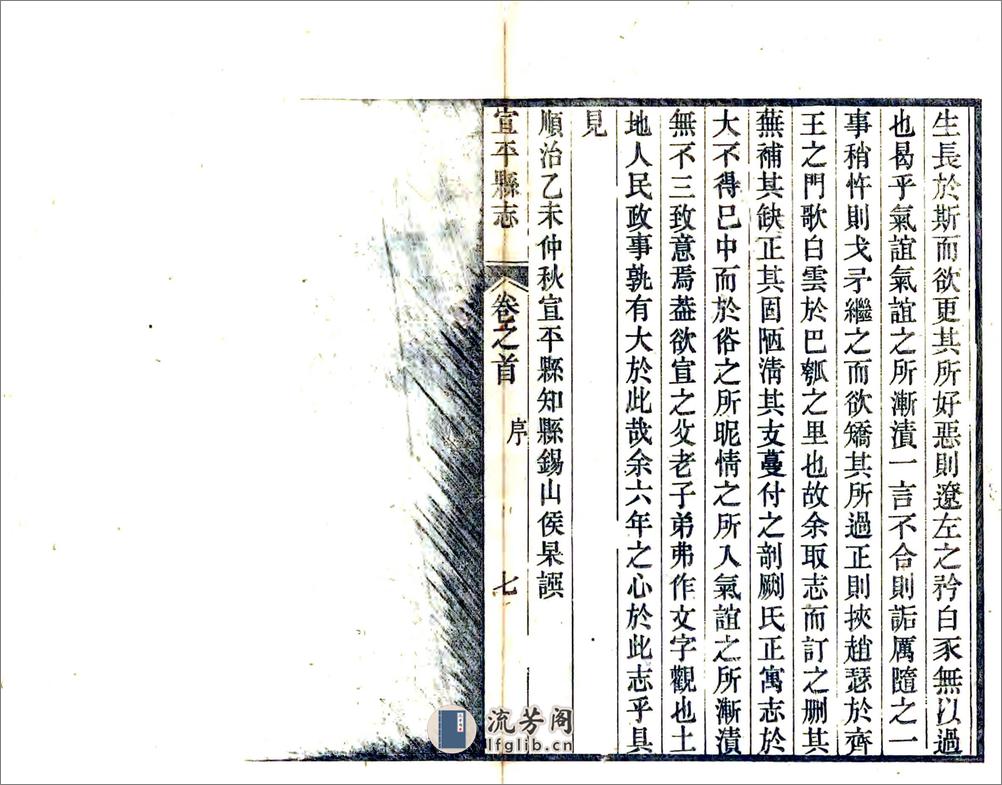 生長於斯而欲更其所好惡則遼左之矜白豕無以過
也曷乎氣誼氣誼之所漸漬一言不合則詬厲隨之一
事稍忤則戈矛繼之而欲矯其所過正則挾趙瑟於齊
王之門歌白雲於巴瓠之里也故余取志而訂之刪其
蕪補其缺正其固陋清其支蔓付之剞劂氏正寓志於
大不得已中而於俗之所昵情之所入氣誼之所漸漬
無不三致意焉葢欲宣之父老子弟弗作文字觀也土
地人民政事孰有大於此哉余六年之心於此志乎具
見
順治乙未仲秋宣平縣知縣錫山侯杲譔
宣平縣志 卷之首 序 七
流芳阁
lfglib.cn